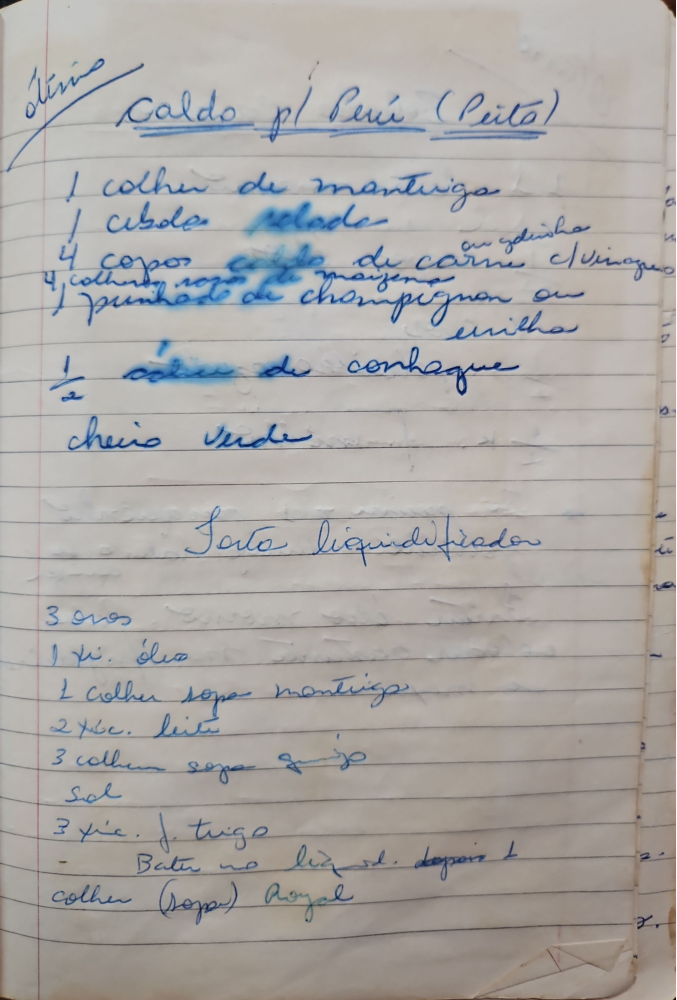 ótimo
Caldo p/ Perú (Peito)
1 colher de manteiga
1 cebola ralada
ou galinha
4 copos caldo de carne c/ vinagre
4 colheres sopa de maizena
1 punhado de champignon ou
ervilha
1/2 cálice de conhaque
cheiro verde
Torta liquidificador
3 ovos
1 xi. óleo
1 colher sopa manteiga
2 xíc. leite
3 colheres sopa queijo
Sal
3 xíc. f. trigo
- Bater no liquid. depois 1
colher (sopa) Royal